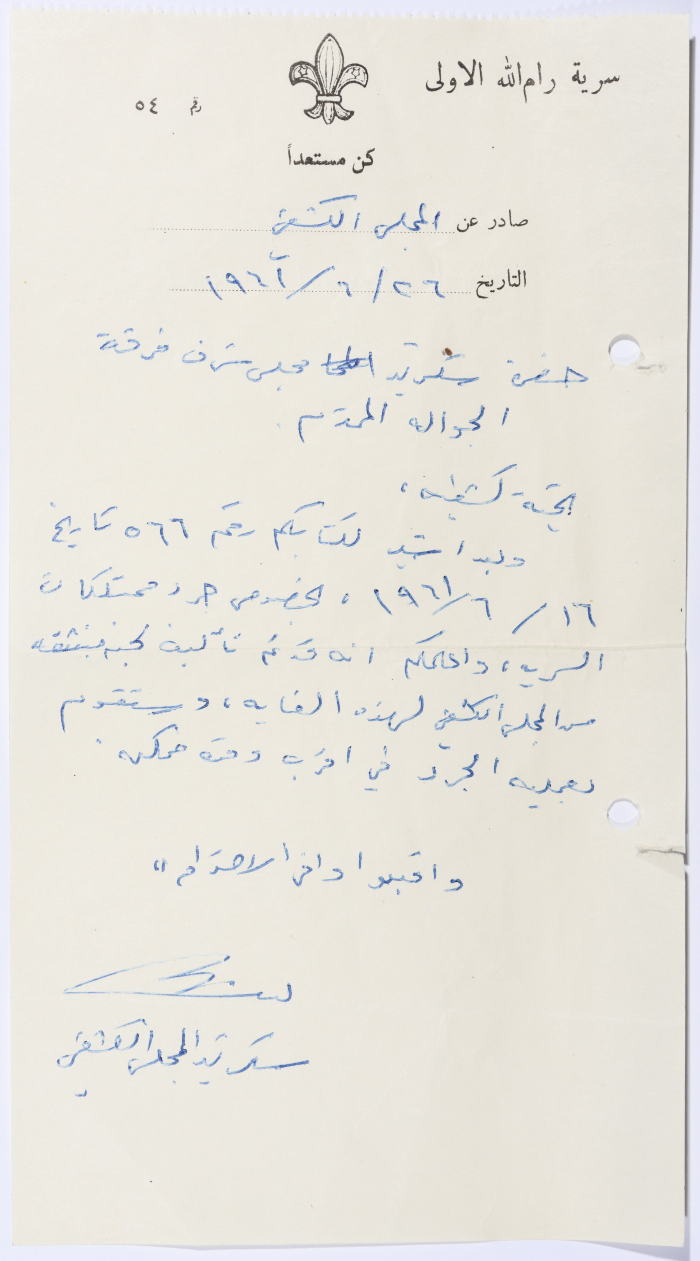 سرية رام الله الاولى
رقم ٥٤
كن مستعداً
صادر عن المجلس الكشفي
التاريخ ٢٦/٦/١٩٦١
حضرة سكرتير مجلس شرف فرقة
الجواله المحترم.
تحية كشفيه،
وبعد اشير لكتابكم رقم ٥٦٦ تاريخ
١٦/٦/١٩٦١، بخصوص جرد ممتلكات
السريه، واعلمكم انه قد تم تأليف لجنه منبثقه
من المجلس الكشفي لهذه الغايه، وستقوم
بعمليه الجرد في اقرب وقت ممكن.
واقبلوا وافر الاحترام،،
سكرتير المجلس الكشفي